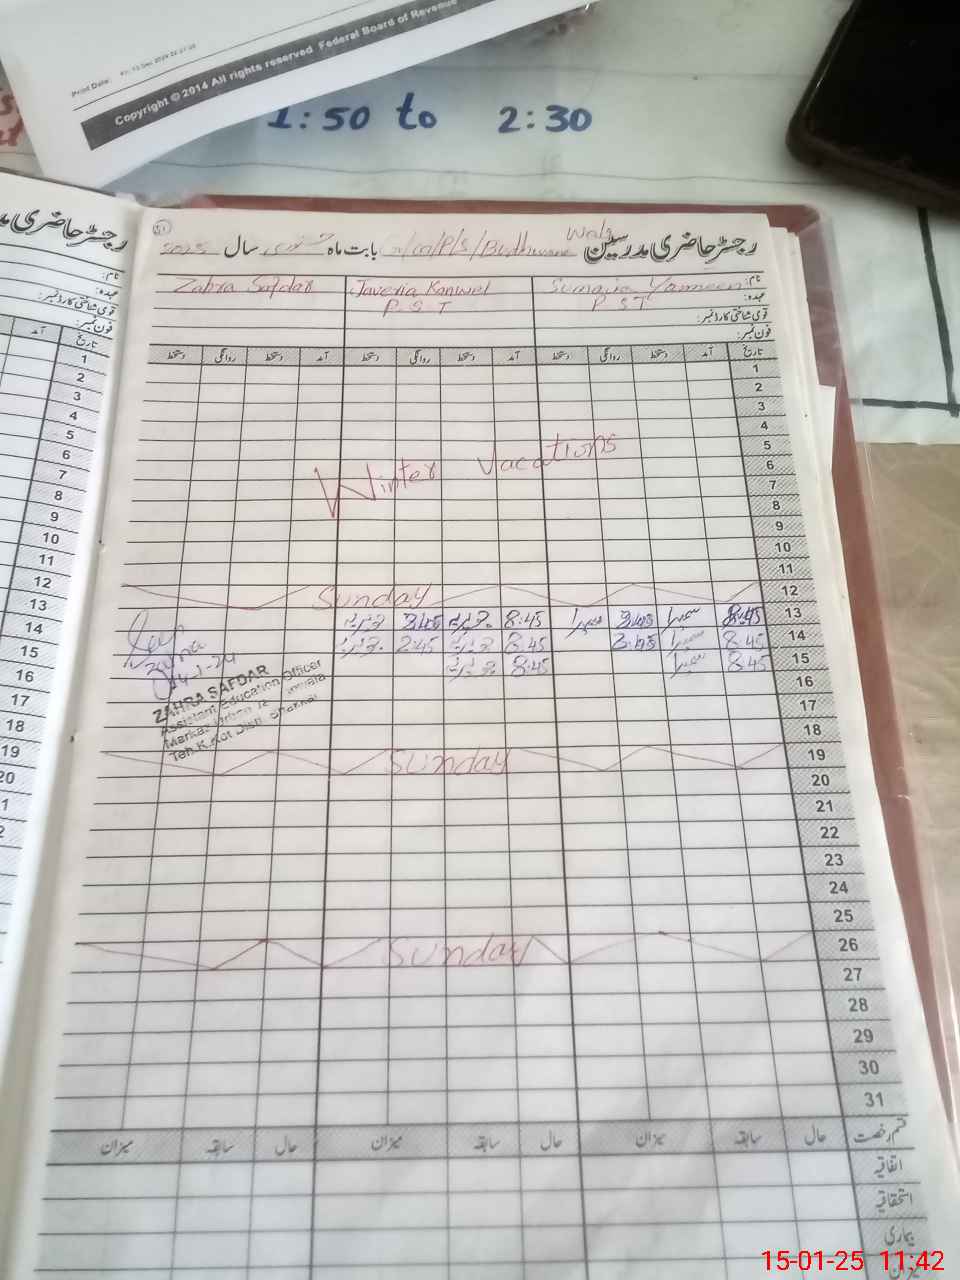 Print Date:
Copyright © 2014 All rights reserved Federal Board of Revenue
1:50 to 2:30
رجسٹر حاضری مدرسین
بابت ماہ جنوری سال 2025
نام: Sumaira Yameen Javeria Kanwel Zahra Safdar
عہدہ: PST P.S.T
قومی شناختی کارڈ نمبر:
فون نمبر:
تاریخ آمد دستخط روانگی دستخط آمد دستخط روانگی دستخط آمد دستخط روانگی دستخط
1
2
3
4
5
Winter Vacations
6
7
8
9
10
11
12 Sunday
13 8:45 سمیرا 3:45 سمیرا 8:45 جویریہ 3:45 جویریہ
14 8:45 سمیرا 3:45 8:45 جویریہ 2:45 جویریہ
15 8:45 سمیرا 8:45 جویریہ
Zahra
14-1-24
ZAHRA SAFDAR
Assistant Education Officer
Markaz Urban
Teh K.Kot Distt. Bhakkar
16
17
18
19 Sunday
20
21
22
23
24
25
26 Sunday
27
28
29
30
31
قسم رخصت حال سابقہ میزان حال سابقہ میزان حال سابقہ میزان
اتفاقیہ
استحقاقیہ
بیماری
میزان
رجسٹر حاضری
نام:
عہدہ:
قومی شناختی کارڈ نمبر:
فون نمبر:
تاریخ آمد
1
2
3
4
5
6
7
8
9
10
11
12
13
14
15
16
17
18
19
20
15-01-25 11:42